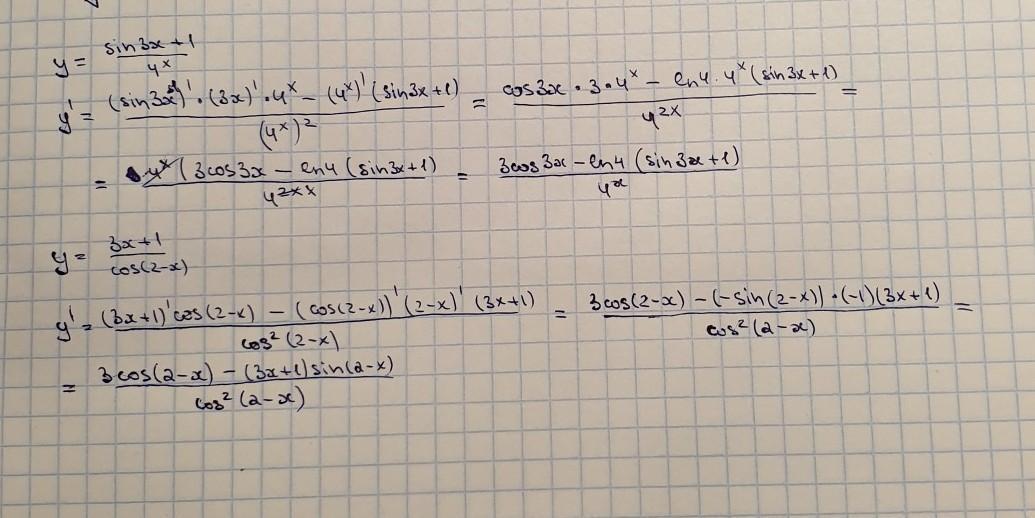 y = (sin3x+1)/4^x
y' = ((sin3x)'·(3x)'·4^x − (4^x)'(sin3x+1))/(4^x)^2 = (cos3x·3·4^x − ln4·4^x(sin3x+1))/4^(2x) =
= 4^x(3cos3x − ln4(sin3x+1)/4^(2x x) = (3cos3x − ln4(sin3x+1))/4^x
y = (3x+1)/cos(2-x)
y' = ((3x+1)'cos(2-x) − (cos(2-x))'(2-x)'(3x+1))/cos^2(2-x) = (3cos(2-x) − (-sin(2-x))·(-1)(3x+1))/cos^2(2-x) =
= (3cos(2-x) − (3x+1)sin(2-x))/cos^2(2-x)